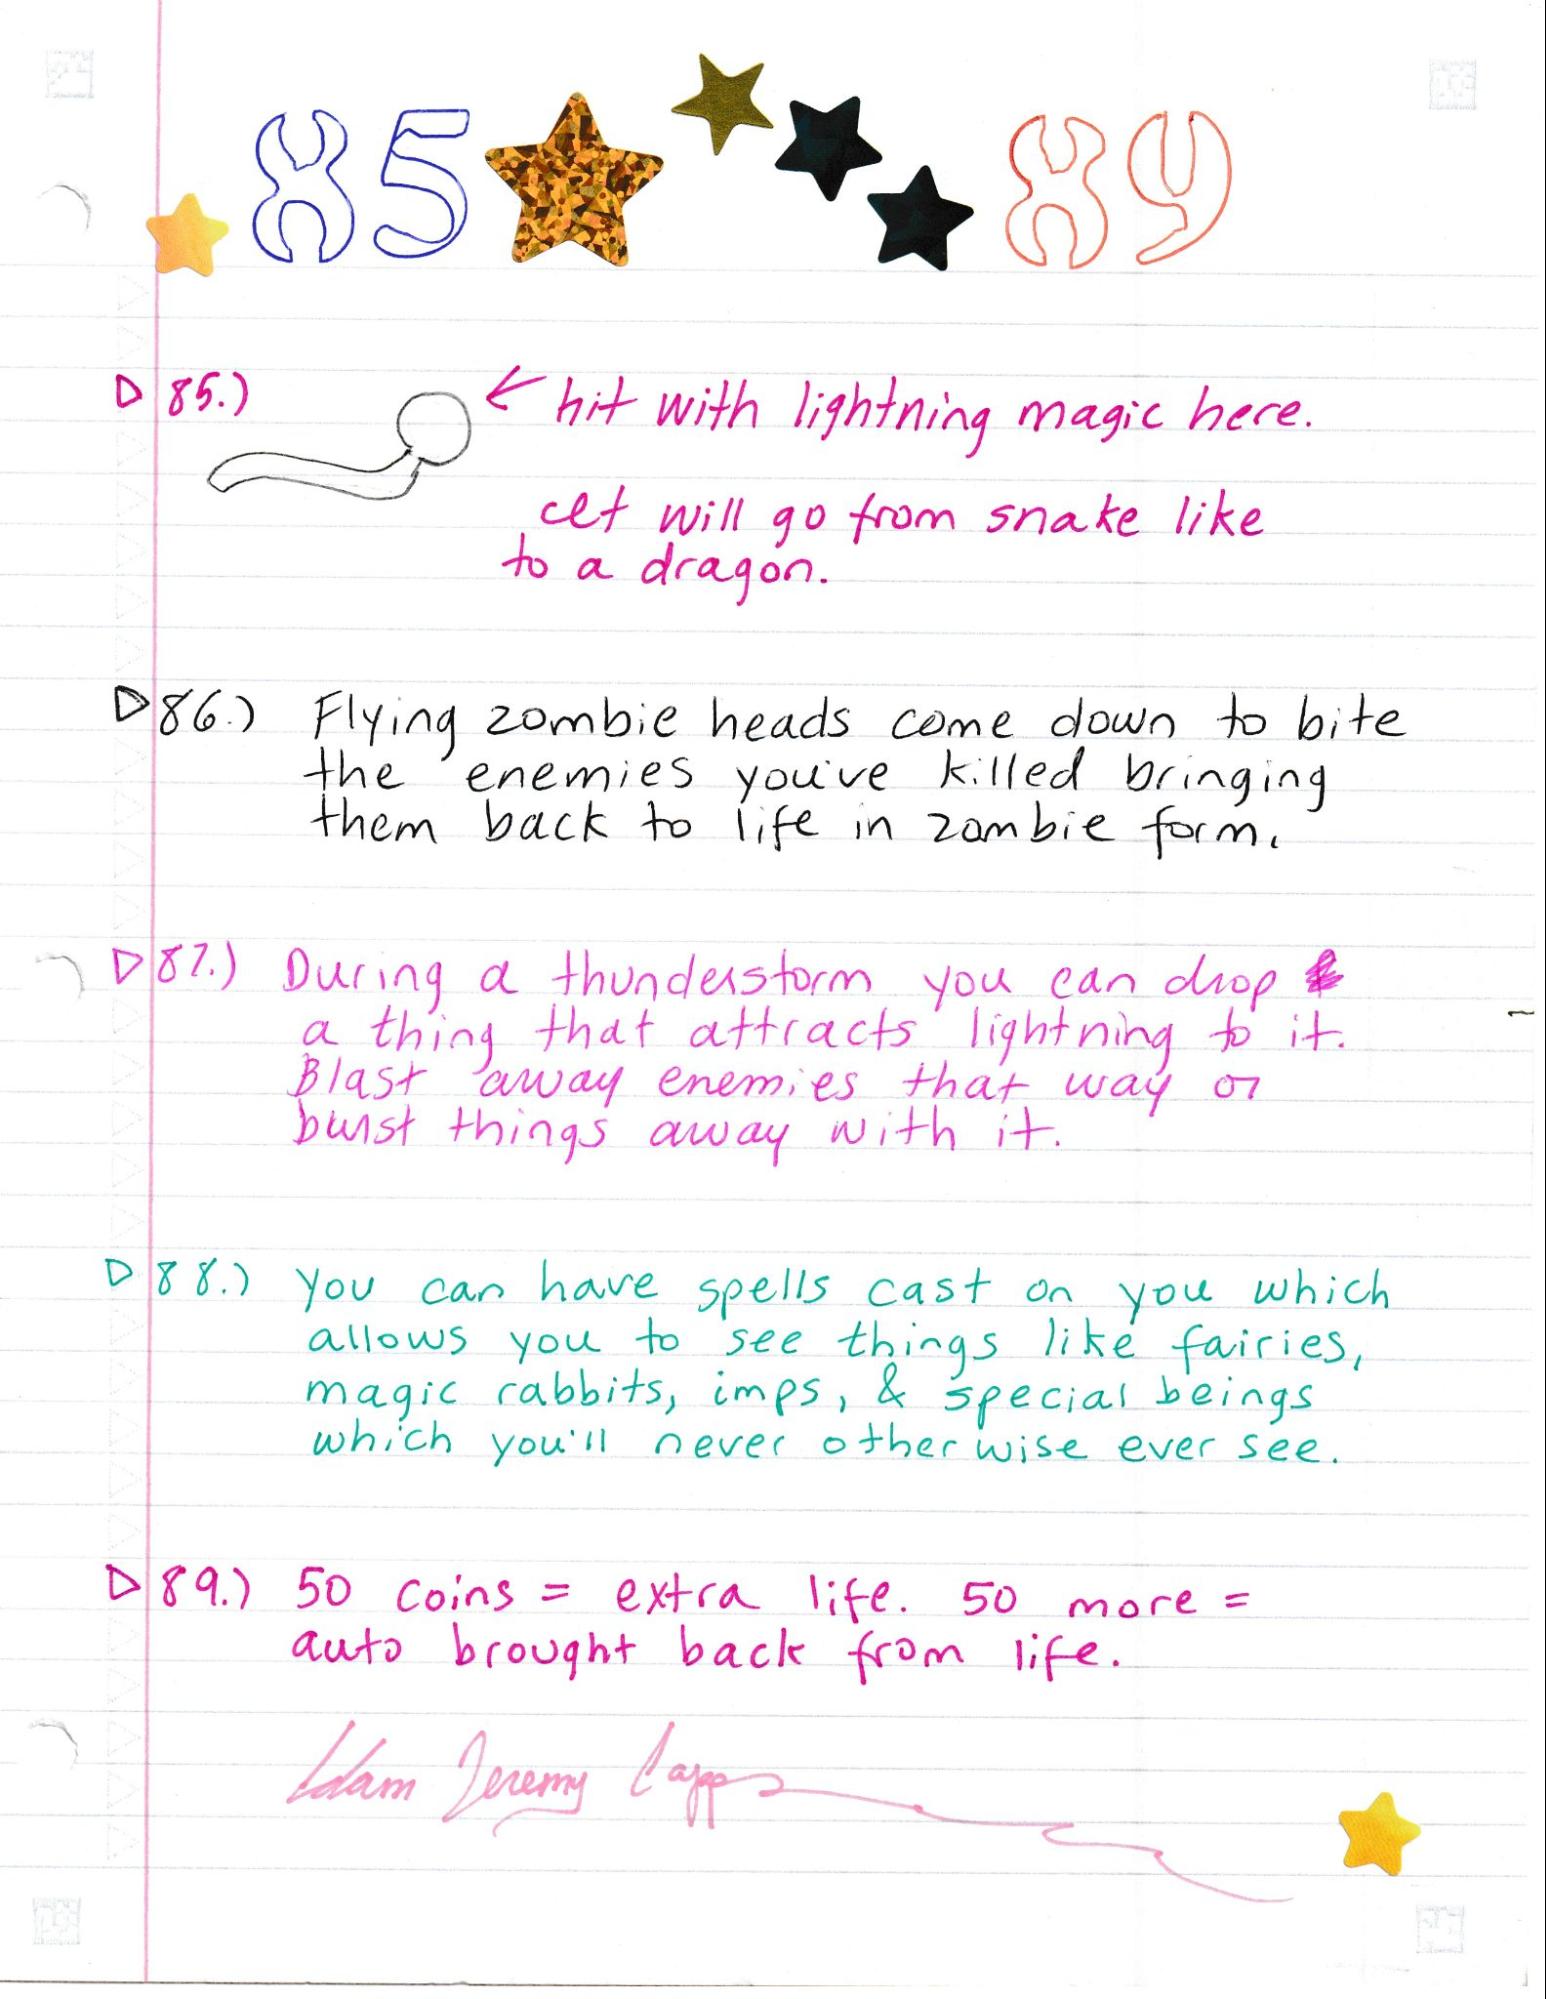 85 89
85.) ← hit with lightning magic here.
cet will go from snake like
to a dragon.
86.) Flying zombie heads come down to bite
the enemies you've killed bringing
them back to life in zombie form.
87.) During a thunderstorm you can drop
a thing that attracts lightning to it.
Blast away enemies that way or
burst things away with it.
88.) You can have spells cast on you which
allows you to see things like fairies,
magic rabbits, imps, & special beings
which you'll never otherwise ever see.
89.) 50 coins = extra life. 50 more =
auto brought back from life.
Adam Jeremy Capps